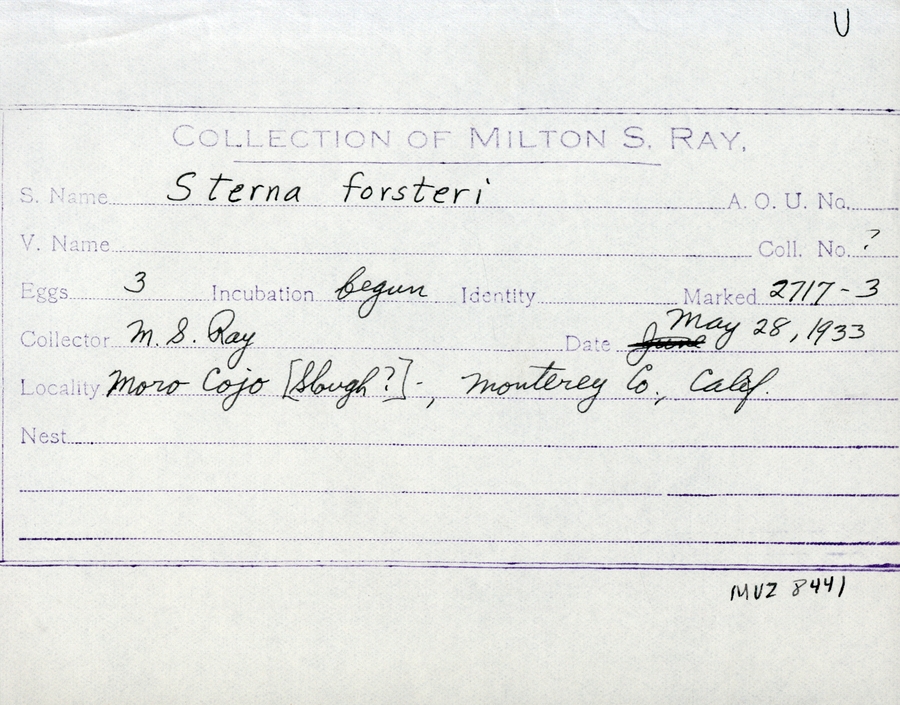 U
COLLECTION OF MILTON S. RAY,
S. Name Sterna forsteri A. O. U. No.
V. Name Coll. No. ?
Eggs 3 Incubation begun Identity Marked 2717-3
Collector M. S. Ray Date June May 28, 1933
Locality Moro Cojo [Slough?]-, Monterey Co., Calif.
Nest
MVZ 8441